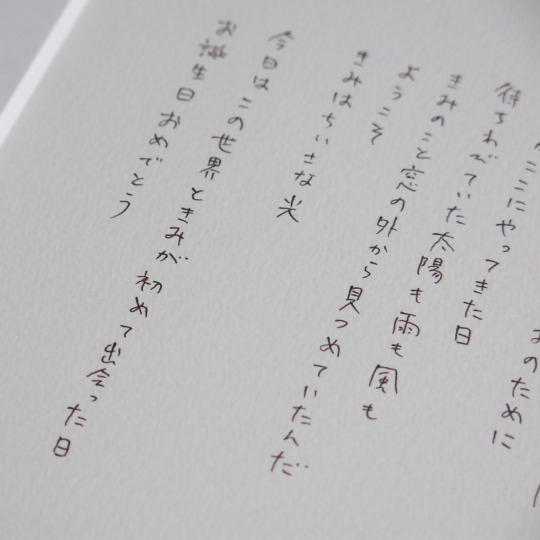 のために
ここにやってきた日
待ちわびていた太陽も雨も風も
きみのこと窓の外から見つめていたんだ
ようこそ
きみはちいさな光
今日はこの世界ときみが初めて出会った日
お誕生日おめでとう